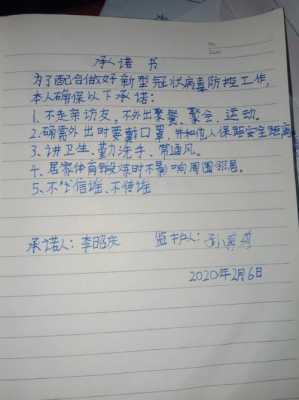 承诺书
为了配合做好新型冠状病毒防控工作,
本人确保以下承诺:
1.不走亲访友,不外出聚餐、聚会、运动。
2.确需外出时要戴口罩,并和他人保持安全距离
3.讲卫生、勤洗手、常通风。
4.居家体育锻炼时不影响周围邻居。
5.不信谣、不传谣
承诺人:李昭庆 监护人:
2020年2月6日